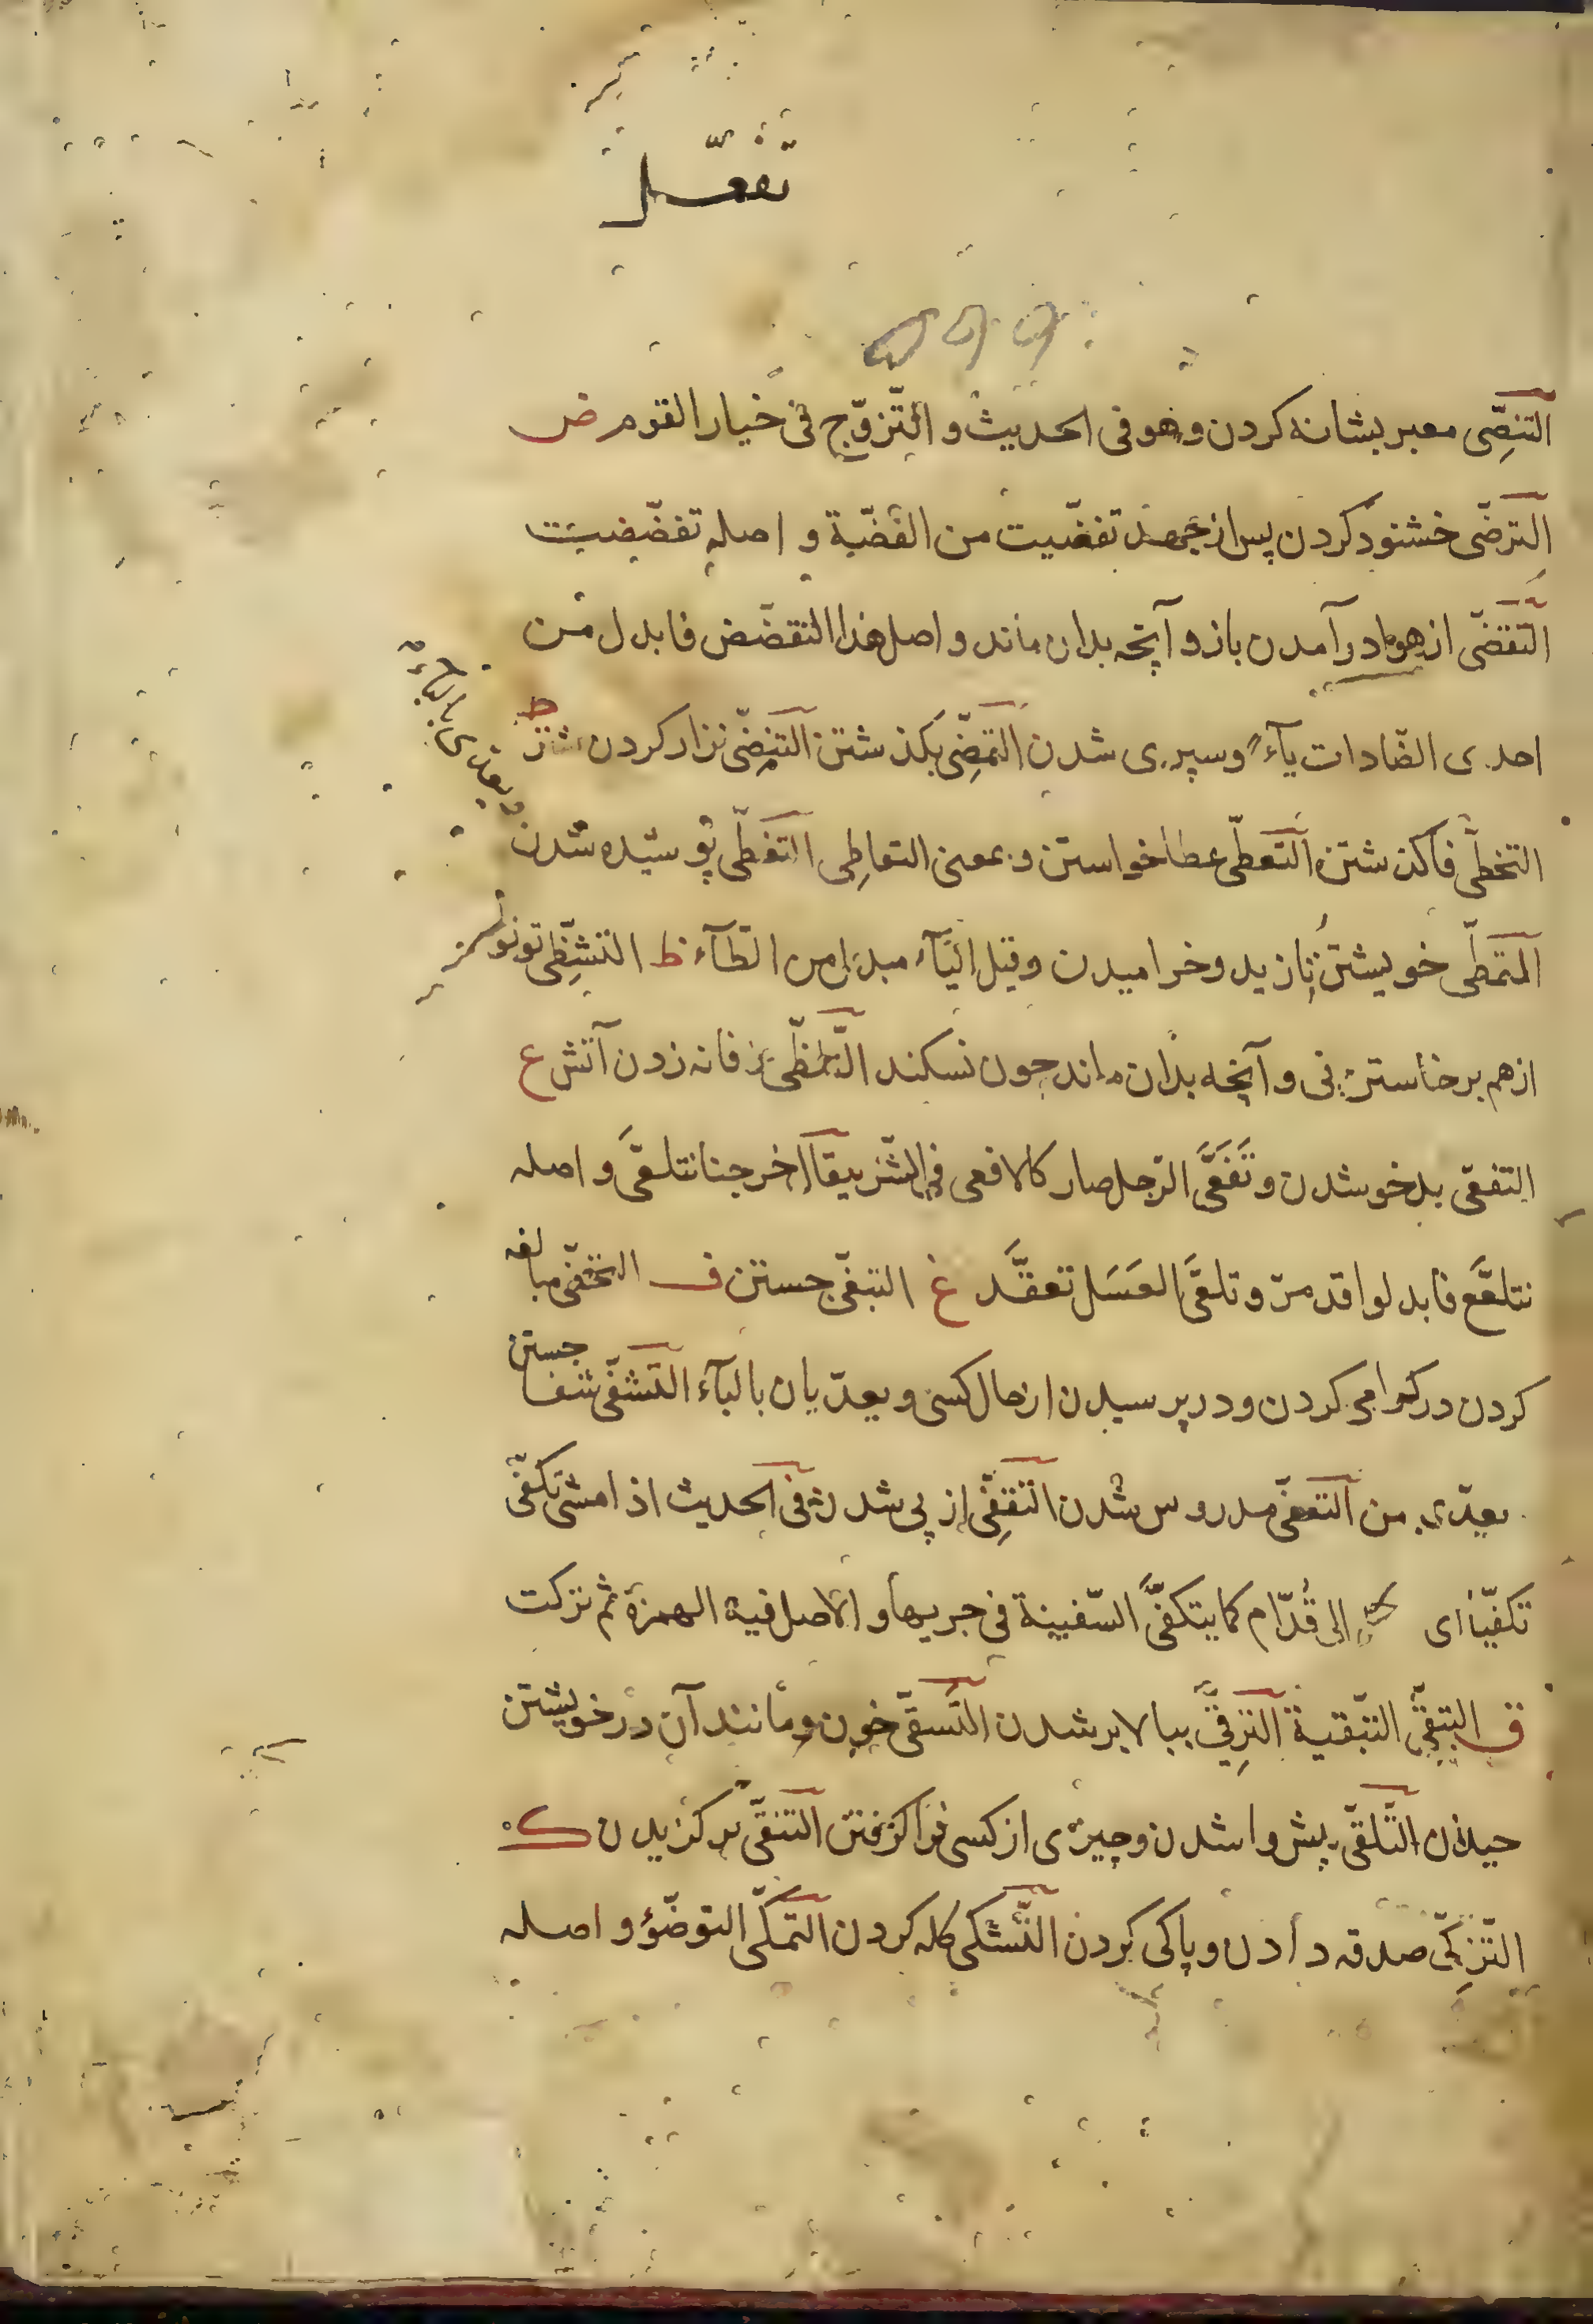 تفعّل
التنصِّى معبر بشانه كردن وهو فى الحديث و التّزوّج فى خيار القوم ض
الترضّى خشنود كردن پس از جهد تفضّيت من الفضّة و اصله تفضّضت
التقضّى از هوا در آمدن باز و آنچه بدان ماند و اصل هذا التقضّض فابدل من
احدى الضّادات يآءً وسپرى شدن التمضِّى بكذشتن التنضِّى نزار كردن شتر ط
ويعدى بالباء
التخطّى فاكذشتن التعطّى عطا خواستن و بمعنى التعاطِى التغطّى پوشيده شدن
التمطّى خويشتن يازيد وخراميدن وقيل اليآء مبدل من الطآء ظ التشظّى تو تو
از هم برخاستن نى و آنچه بدان ماند جون نسكند التلظّى زفانه زدن آتش ع
التفعّى بدخو شدن وتَفَعَّى الرّجل صار كالافعى فى الشّر يقال خرجنا نتلعَّى و اصله
نتلعَّع فابدلوا قد مرّ و تلعَّى العَسَل تعقَّد غ التبغّى جستن ف التحفّى مبالغه
كردن در كرامى كردن و در پرسيدن از حال كسى و يعدّيان بالبآء التشفّى شفا جستن
يعدّى بمن التعفّى مدروس شدن التقفِّى از پى شدن فى الحديث اذا مشى تكفّى
تكفّيًا اى الى قُدّام كما يتكفَّى السّفينة فى جريها و الاصل فيه الهمزة ثم تركت
ق التبقّى التبقية الترقّى ببالا بر شدن التسقّى خون و مانند آن در خويشتن
حيدن التلقّى پيش وا شدن و چيزى از كسى فرا كرفتن التنقّى بركزيدن ك
التزكّى صدقه دادن و پاكى كردن التشكى كله كردن التمكّى التوضّؤ و اصله